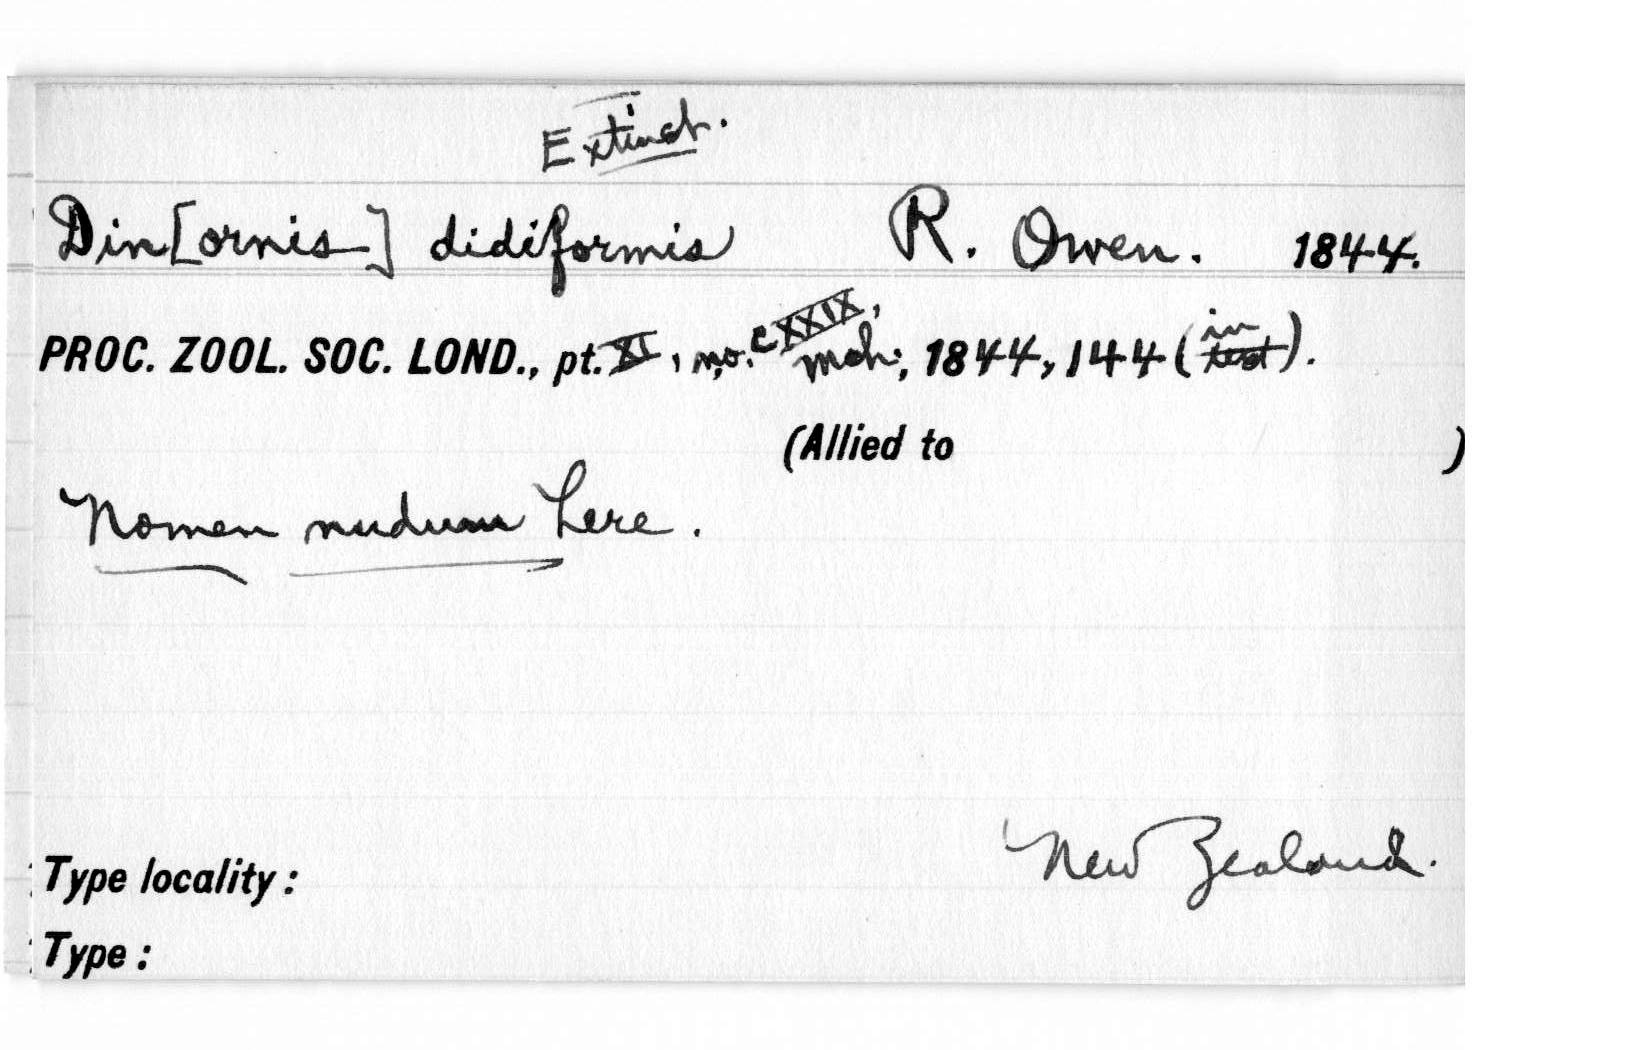 Extinct.
Din[ornis] didiformis R. Owen. 1844.
PROC. ZOOL. SOC. LOND., pt. XI, no. CXXIX, Mch., 1844, 144 (in text).
(Allied to )
Nomen nudum here.
New Zealand.
Type locality:
Type: